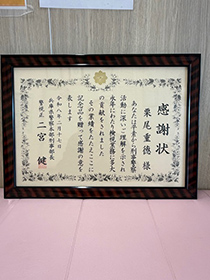 感謝状
栗尾重徳 様
あなたは平素から刑事警察
活動に深いご理解を示され
永年にわたり検視業務に多大
の貢献をされました
その業績をたたえここに
記念品を贈って感謝の意を
表します
令和八年二月十七日
兵庫県警察本部刑事部長
警視正 二宮 健